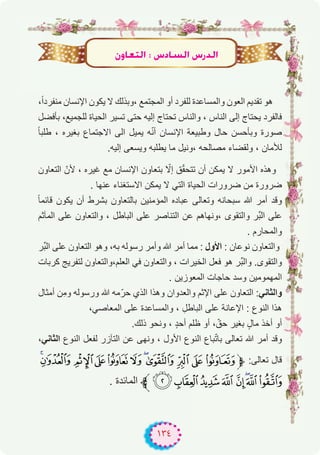 الدرس السادس : التعاون
هو تقديم العون والمساعدة للفرد أو المجتمع ،وبذلك لا يكون الإنسان منفرداً،
فالفرد يحتاج إلى الناس ، والناس تحتاج إليه حتى تسير الحياة للجميع، بأفضل
صورة وبأحسن حال وطبيعة الإنسان أنّه يميل الى الاجتماع بغيره ، طلباً
للأمان ، ولقضاء مصالحه ،ونيل ما يطلبه ويسعى إليه.
وهذه الأمور لا يمكن أن تتحقّق إلاّ بتعاون الإنسان مع غيره ، لأنّ التعاون
ضرورة من ضرورات الحياة التي لا يمكن الاستغناء عنها .
وقد أمر الله سبحانه وتعالى عباده المؤمنين بالتعاون بشرط أن يكون قائماً
على البُّر والتقوى ،ونهاهم عن التناصر على الباطل ، والتعاون على المآثم
والمحارم .
والتعاون نوعان : الأول : مما أمر الله وأمر رسوله به، وهو التعاون على البُّر
والتقوى. والبُّر هو فعل الخيرات ، والتعاون في العلم،والتعاون لتفريج كربات
المهمومين وسد حاجات المعوزين .
والثاني: التعاون على الإثم والعدوان وهذا الذي حرّمه الله ورسوله ومن أمثال
هذا النوع : الإعانة على الباطل ، والمساعدة على المعاصي،
أو أخذ مالٍ بغير حقّ، أو ظلم أحدٍ ، ونحو ذلك.
وقد أمر الله تعالى بأتّباع النوع الأول ، ونهى عن التآزر لفعل النوع الثاني،
قال تعالى: ﴿ وَتَعَاوَنُوا۟ عَلَى ٱلْبِرِّ وَٱلتَّقْوَىٰ ۖ وَلَا تَعَاوَنُوا۟ عَلَى ٱلْإِثْمِ وَٱلْعُدْوَٰنِ ۚ
وَٱتَّقُوا۟ ٱللَّهَ ۖ إِنَّ ٱللَّهَ شَدِيدُ ٱلْعِقَابِ ٢ ﴾ المائدة .
١٣٤